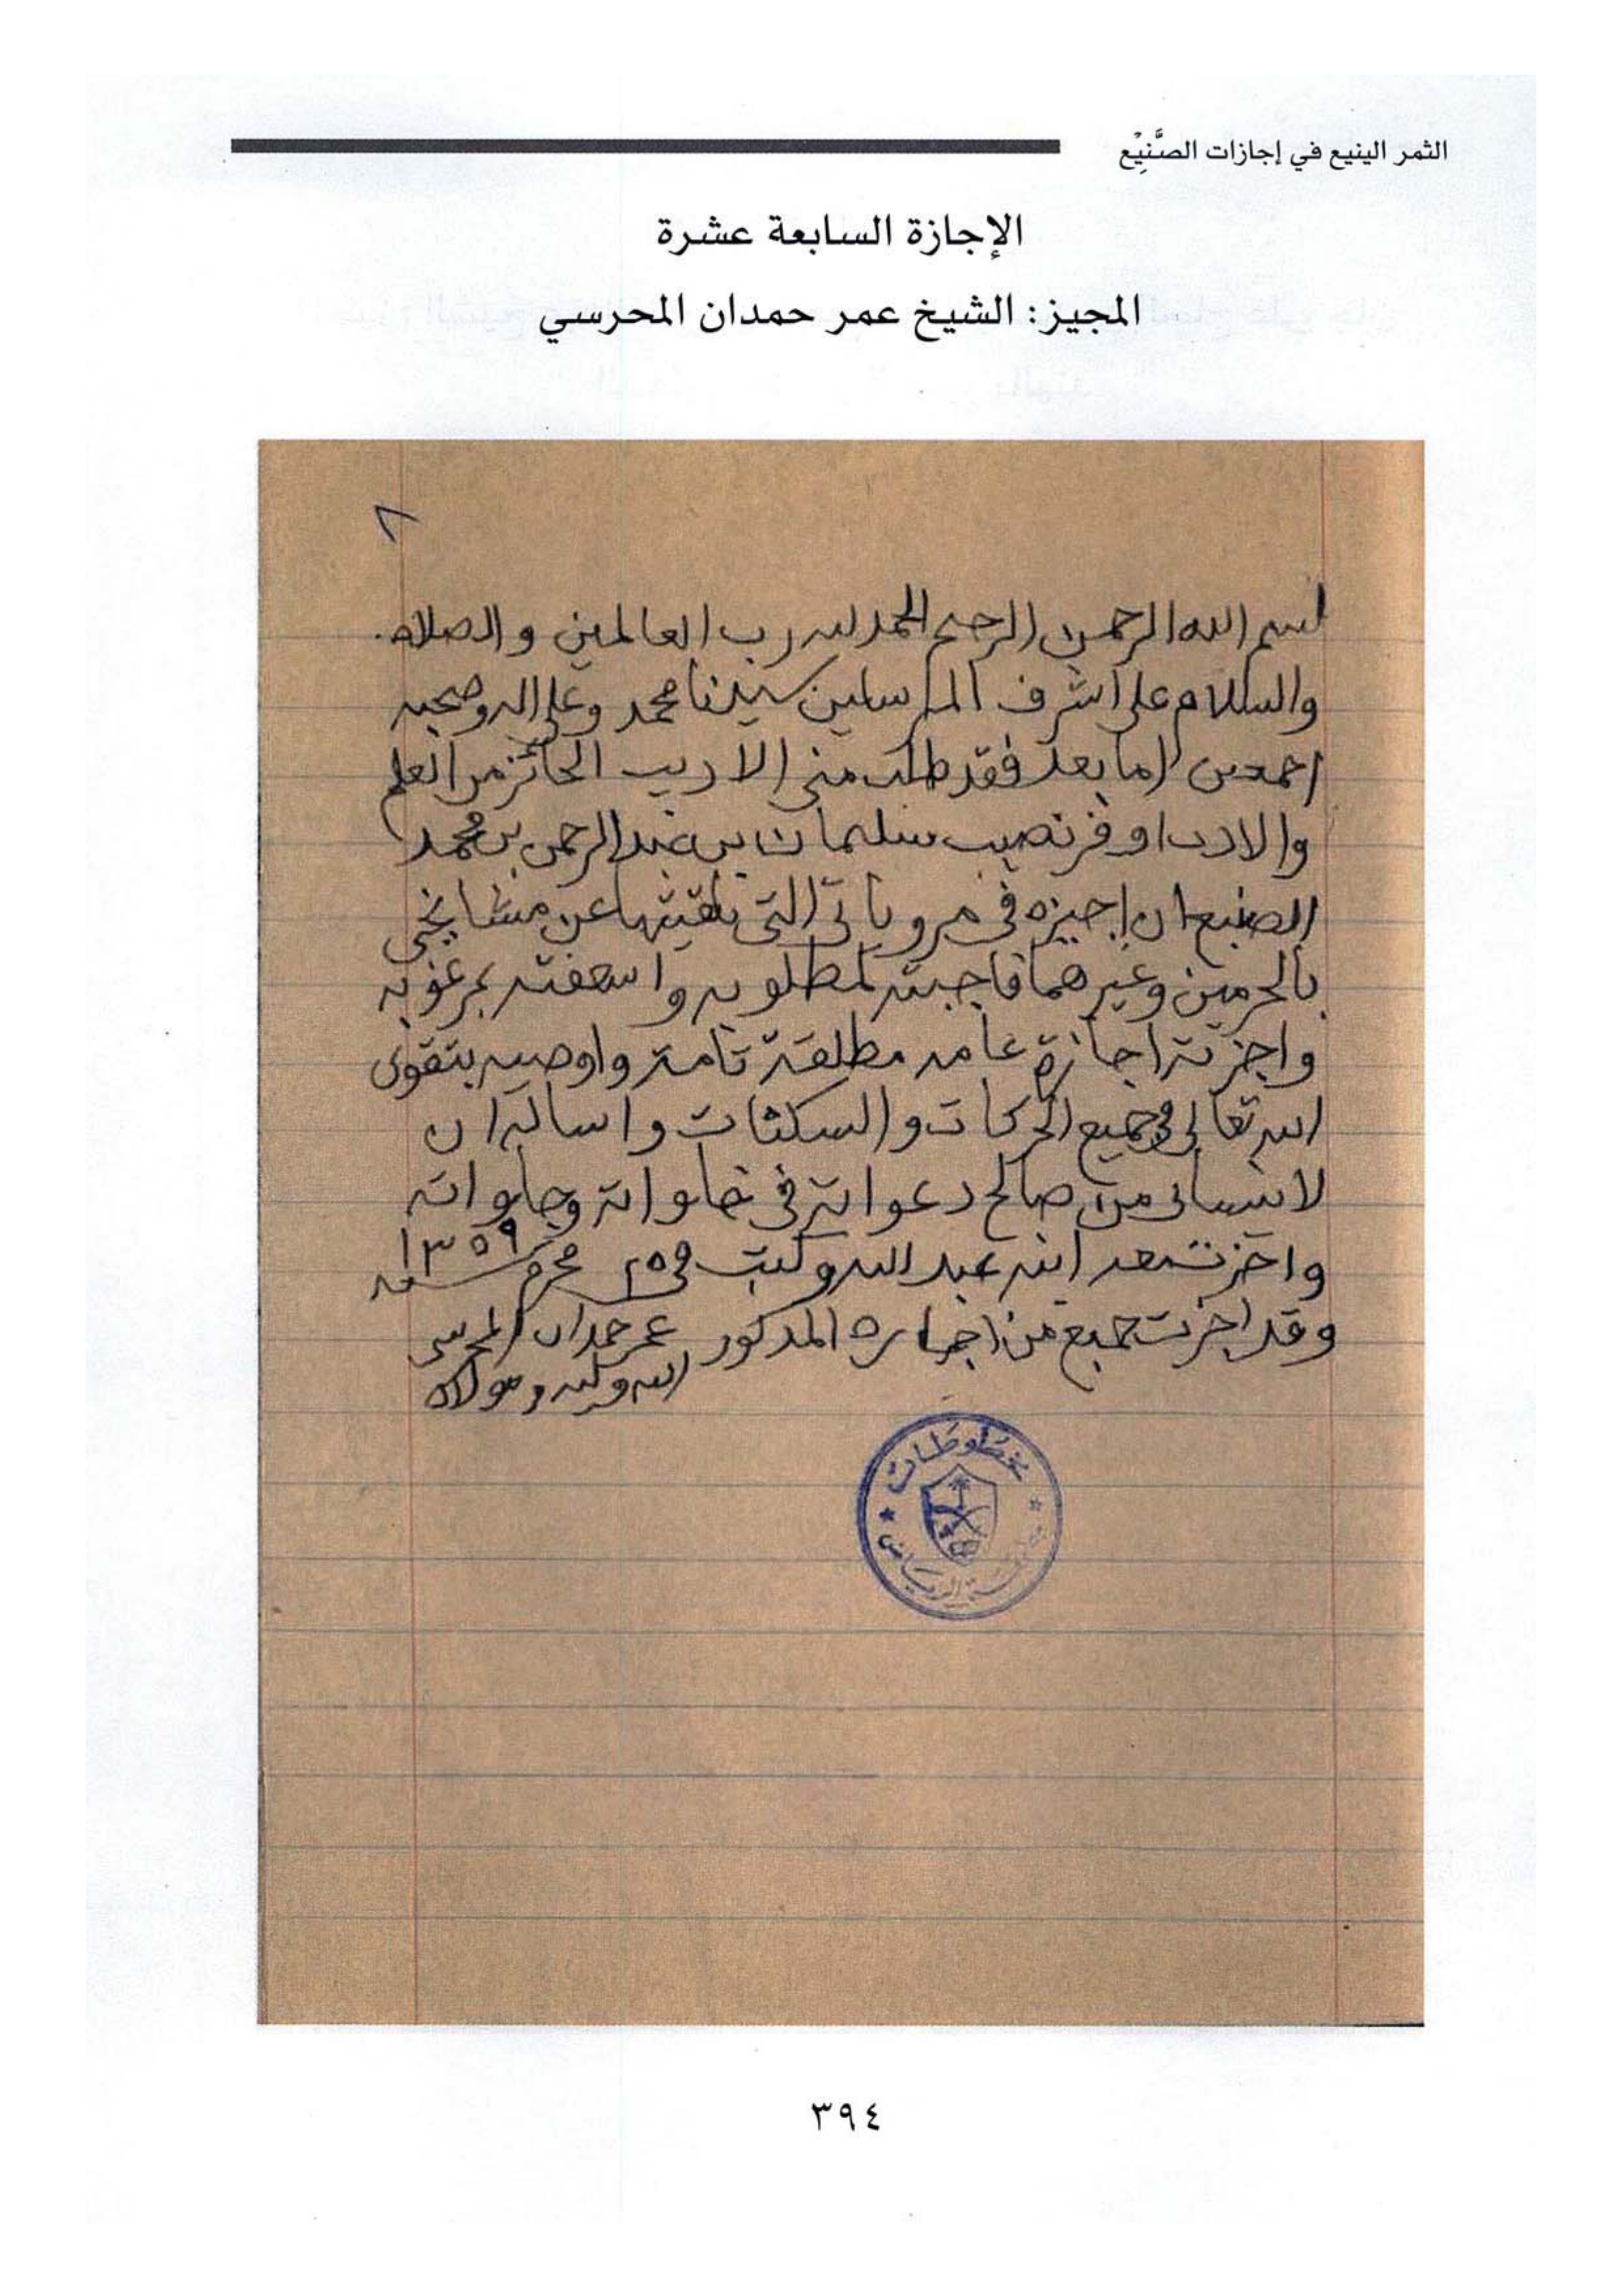 الثمر الينيع في إجازات الصَّنِيْع
الإجازة السابعة عشرة
المجيز: الشيخ عمر حمدان المحرسي
٨
بسم الله الرحمن الرحيم الحمد لله رب العالمين والصلاه
والسلام على اشرف المرسلين سيدنا محمد وعلى اله وصحبه
اجمعين اما بعد فقد طلب مني الاديب الحائز من العلم
والادب اوفر نصيب سليمان بن عبد الرحمن بن محمد
الصنيع ان اجيزه في مروياتي التي تلقيتها عن مشايخي
بالحرمين وغيرهما فاجبته لمطلوبه واسعفته بمرغوبه
واجزته اجازة عامه مطلقة تامة واوصيه بتقوى
الله تعالى في جميع الحركات والسكنات واساله ان
لا ينساني من صالح دعواته في خلواته وجلواته
واجزت بعد ابنه عبد الله وكتب في ٢٥ محرم سنه ١٣٥٩
وقد اجزت جميع من اجازه المذكور عمر حمدان المحرسي
الله وليه ومولاه
مخطوطات
الرياض
٣٩٤